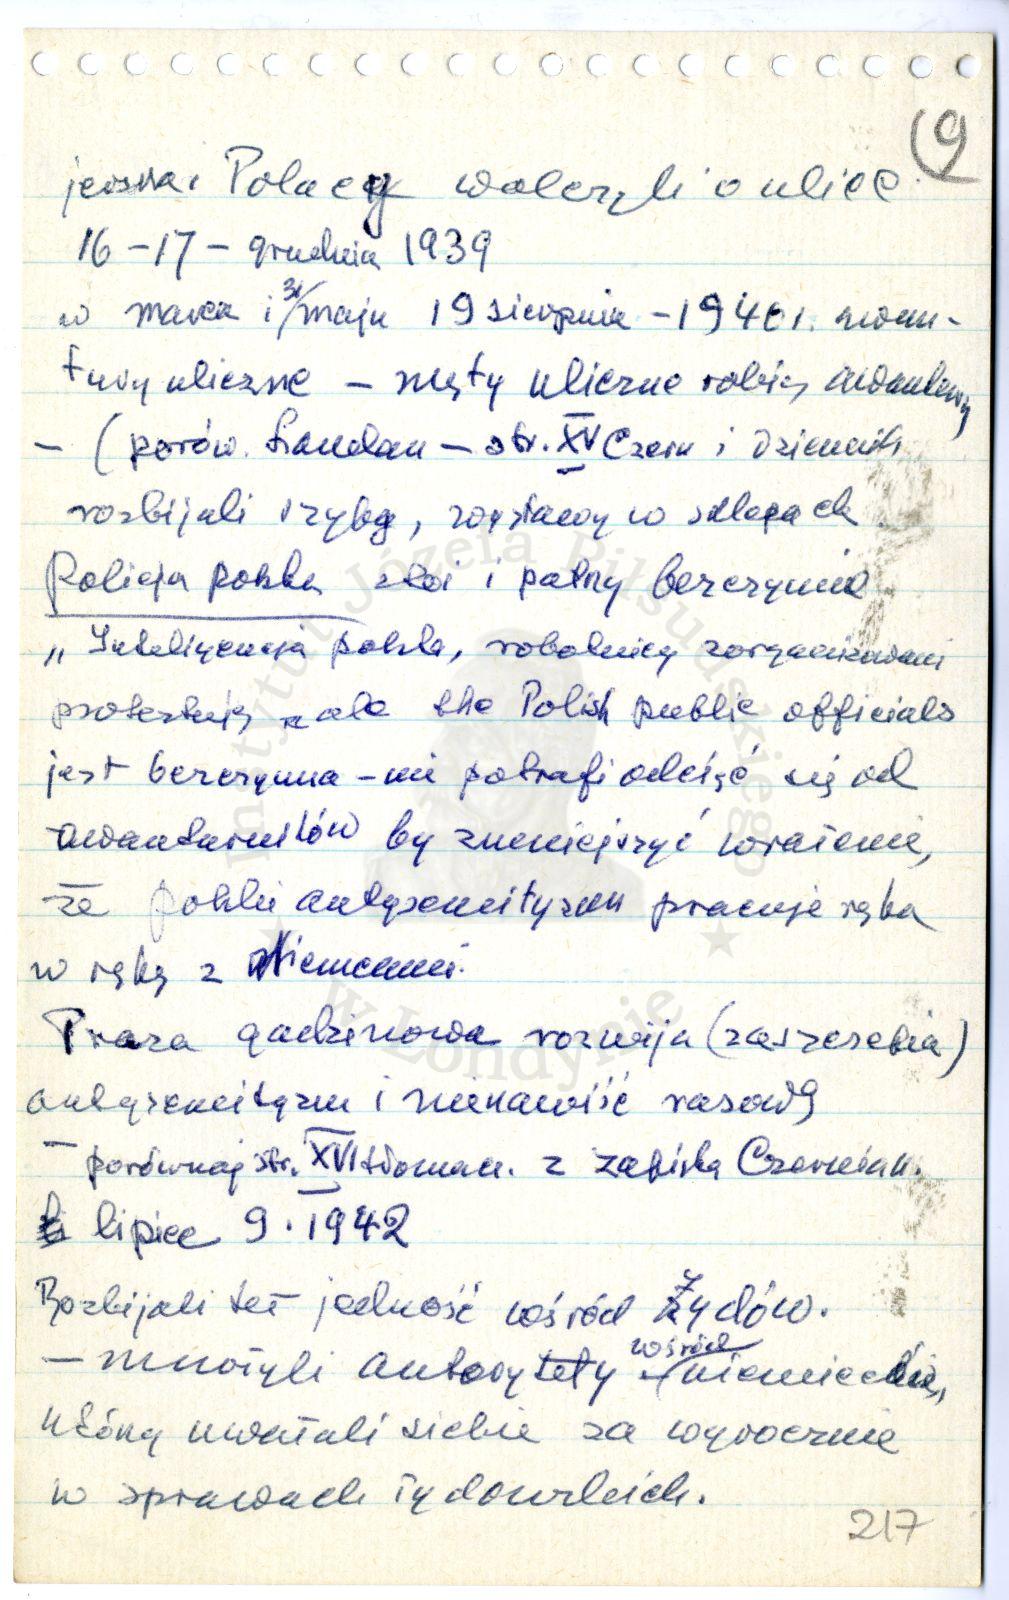 (9
Polacy walczyli o ulicę.
16 – 17 – grudnia 1939
w marcu i 31/maju 19 sierpnia – 1940 r. awan-
tury uliczne – męty uliczne robią awantury
– (porów. Landau – str. XV Czern i Dziennik
rozbijali szyby, wystawy w sklepach
Policja polska stoi i patrzy bezczynnie
„Inteligencja polska, robotnicy zorganizowani
protestują „ale the Polish public officials
jest bezczynna – nie potrafi odciąć się od
awanturników by zmniejszyć wrażenie,
że polski antysemityzm pracuje ręka
w rękę z Niemcami.
Prasa gadzinowa rozwija (zaszczepia)
antysemityzm i nienawiść rasową
– porównaj str. XVI z zapiską Czerniak.
lipiec 9. 1942
Rozbijali też jedność wśród Żydów.
– mnożyli autorytety wśród niemieckie,
którzy uważali siebie za wyrocznie
w sprawach żydowskich.
217
Instytut Józefa Piłsudskiego
w Londynie